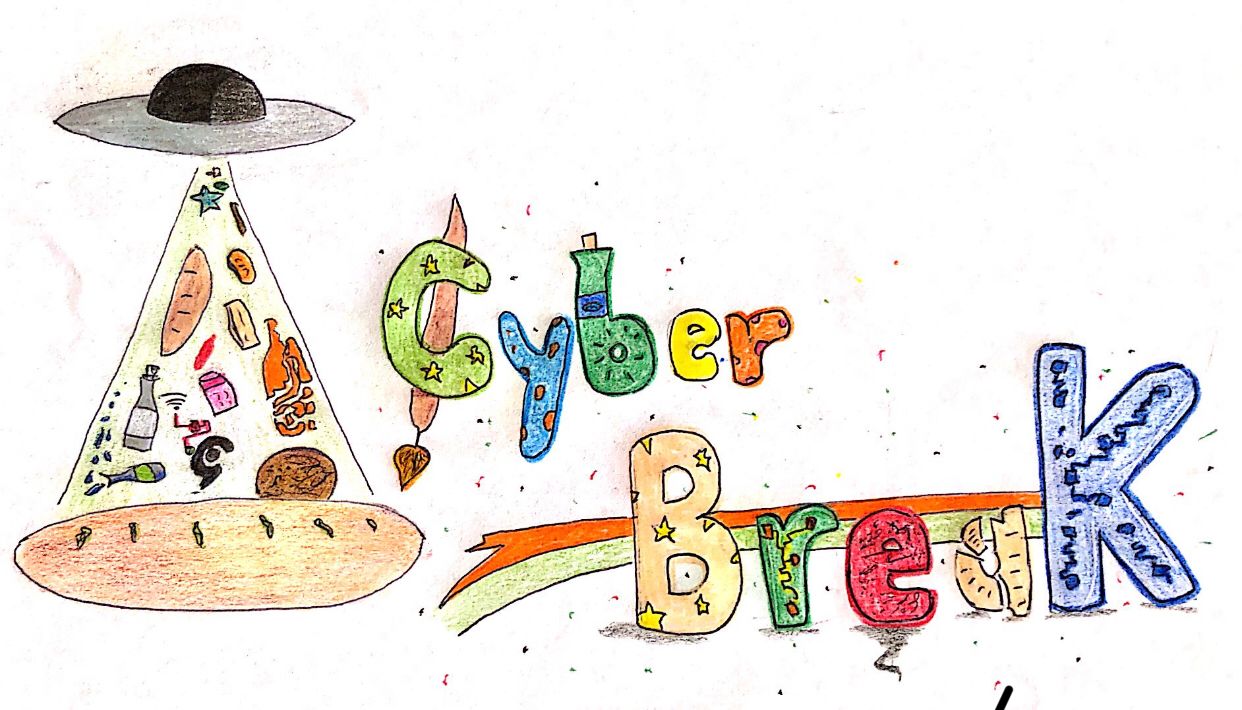 Cyber
BreaK